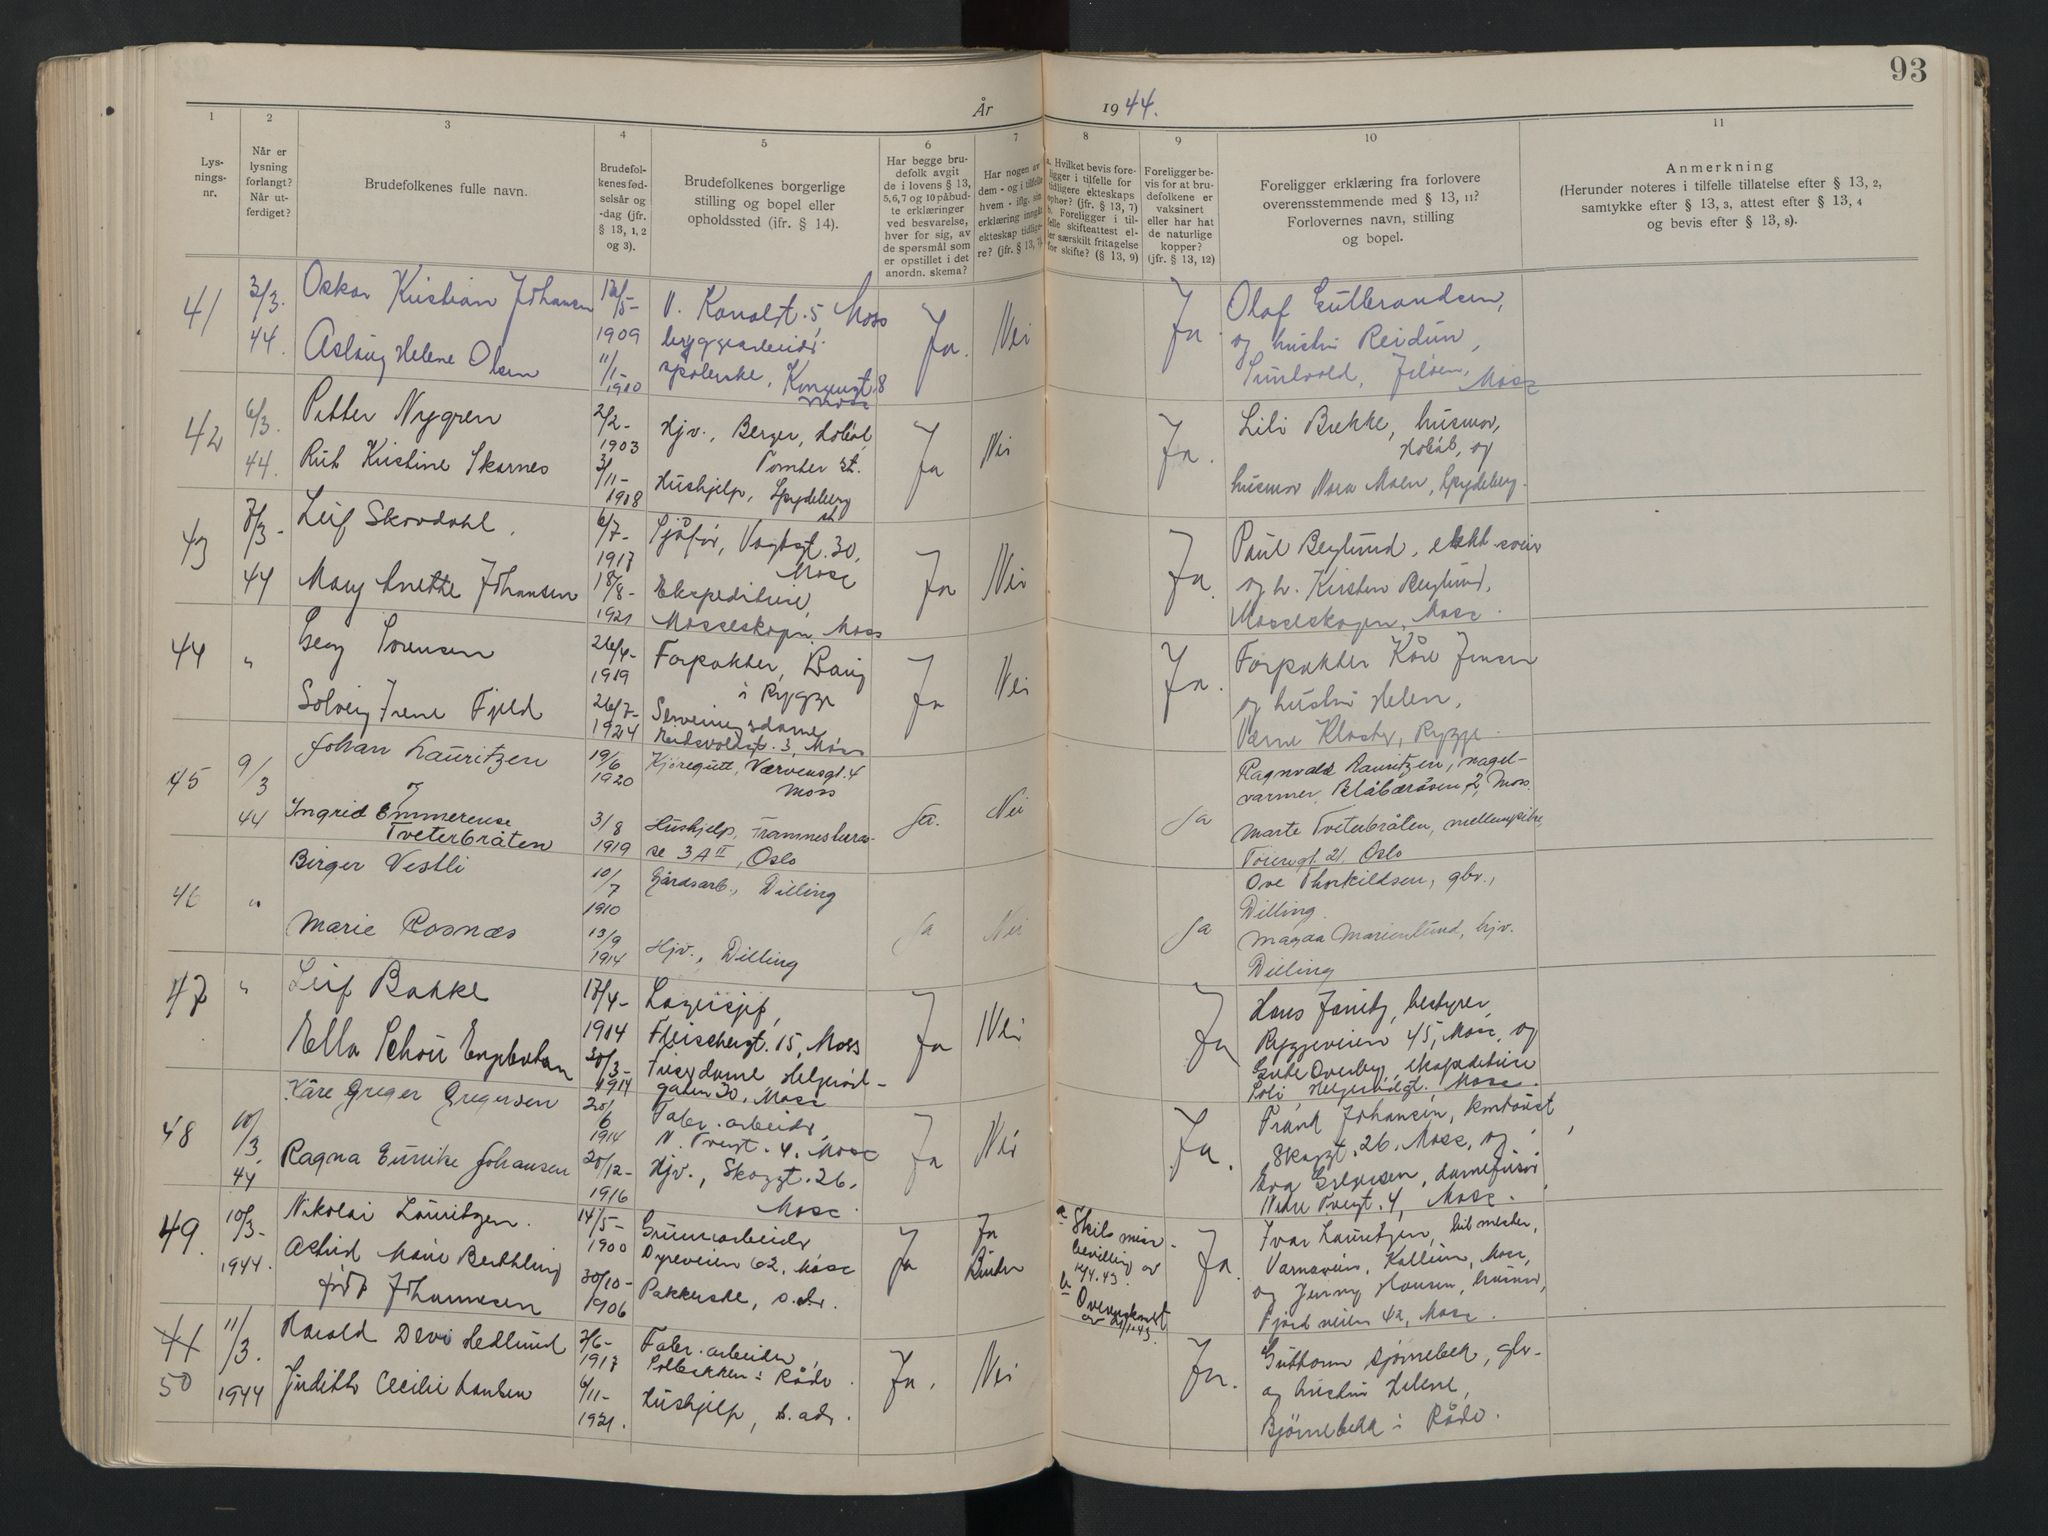 93
År 1944.
1
2
3
4
5
6
7
8
9
10
11
Lys-
nings-
nr.
Når er
lysning
forlangt?
Når ut-
ferdiget?
Brudefolkenes fulle navn.
Brudefol-
kenes fød-
selsår og
-dag (jfr.
§ 13, 1, 2
og 3).
Brudefolkenes borgerlige
stilling og bopel eller
opholdssted (ifr. § 14).
Har begge bru-
defolk avgit
de i lovens § 13,
5, 6, 7 og 10 påbud-
te erklæringer
ved besvarelse,
hver for sig, av
de spørsmål som
er opstillet i det
anordn. skema?
Har nogen av
dem - og i tilfelle
hvem - iflg. sin
erklæring inngått
ekteskap tidlige-
re? (jfr. § 13, 7).
a. Hvilket bevis fore-
ligger i tilfelle for
tidligere ekteskaps
ophør? (jfr. § 13, 7)
b. Foreligger i til-
felle skifteattest el-
ler særskilt fritagelse
for skifte? (§ 13, 9)
Foreligger be-
vis for at bru-
defolkene er
vaksinert
eller har hat
de naturlige
kopper?
(jfr. § 13, 12)
Foreligger erklæring fra forlovere
overensstemmende med § 13, 11?
Forlovernes navn, stilling
og bopel.
Anmerkning
(Herunder noteres i tilfelle tillatelse efter § 13, 2,
samtykke efter § 13, 3, attest efter § 13, 4
og bevis efter § 13, 8).
41
3/3.
44.
Oskar Kristian Johansen
Aslaug Helene Olsen
12/5-
1909
11/1-
1910
V. Kanalgt. 5, Moss
bryggearbeider
spolerske, Kongensgt. 8
Moss
Ja.
Nei
Ja
Olaf Gulbrandsen,
og hustru Reidun,
Jeløen, Moss
42
6/3.
44.
Petter Nygren
Rut Kristine Skarnes
2/2-
1903
3/11-
1918
Hjv., Berger, Hobøl
Tomter st.
Hushjelp, Spydeberg
st
Ja
Nei
Ja.
Lili Brekke, husmor,
Hobøl, og
husmor Nora Moen, Spydeberg.
43
7/3-
44
Leif Skovdahl.
Mary Anette Johansen
6/7-
1917
18/8-
1921
Sjåfør, Vogtsgt. 30,
Moss
Ekspeditrise,
Mosseskogen, Moss
Ja
Nei
Ja.
Paul Berglund, elekt. svein
og h. Kirsten Berglund,
Mosseskogen, Moss.
44
"
Georg Sørensen
Solveig Irene Fjeld
26/4-
1919
26/7-
1924
Forpakter,
i Rygge
Serveringsdame
Eidsvoldsgt. 3, Moss
Ja
Nei
Ja.
Forpakter Kåre Jensen
og hustru Helen,
Værne Kloster, Rygge.
45
9/3
44
Johan Lauritzen
og
Ingrid Emmerense
Tveterbråten
19/6
1920
3/8
1919
Kjøregutt, Værvensgt. 4
Moss
Hushjelp, Framnesterras-
se 3 A II, Oslo
Ja.
Nei
Ja
Ragnvald Lauritzen, nagel-
varmer, Blåbæråsen 2, Moss.
Marte Tveterbråten,
Tøiengt. 21, Oslo
46
"
Birger Vestli
Marie Rosnæs
10/7
1910
13/9
1914
Gårdsarb., Dilling
Hjv., Dilling
Ja
Nei
Ja
Ove Thorkildsen, gbr.,
Dilling.
Magda Marienlund, hjv.
Dilling
47
"
Leif Bakke
Ella Schou
17/4-
1914
30/3-
1914
Lagersjef,
Fleischersgt. 15, Moss
Frisørdame, Helgerød-
gaten 30, Moss
Ja
Nei
Ja
Hans Jonitz, bestyrer,
Ryggeveien 45, Moss, og
Overby, ekspeditrise
Helgerødgt., Moss.
48
10/3.
44
Kåre Greger Gregersen
Ragna Eunike Johansen
20/6
1914
20/12-
1916
Fabr. arbeider,
N. Torvgt. 4, Moss
Hjv., Skoggt. 26,
Moss.
Ja
Nei
Ja.
Johansen, kontorist,
Skoggt. 26, Moss, og
Eva Gregersen, damefrisør
Nedre Torvgt. 4, Moss.
49.
10/3-
1944.
Nikolai Lauritzen.
Astrid Marie Berthling
født Johannesen
14/5-
1900
30/10-
1906
Grunnarbeider
Dyreveien 62, Moss
Pakkerske, s. adr.
Ja
Ja
Bruden
a Skilsmisse-
bevilling av
1/4.43.
b Overenskomst
av 21/1-43.
Ja.
Ivar Lauritzen,
Varnaveien, Kallum, Moss,
og Jenny Hansen, husmor,
Fjordveien 42, Moss.
41
50
11/3.
1944
Harald Devi Hedlund
Judith Cecilie Laulen
2/6-
1917
6/11-
1921.
Fabr. arbeider,
Solbakken i Råde.
Hushjelp, s. adr.
Ja.
Nei
Ja.
Guttorm Bjørnebekk, gbr.
og hustru Helene,
Bjørnebekk i Råde.